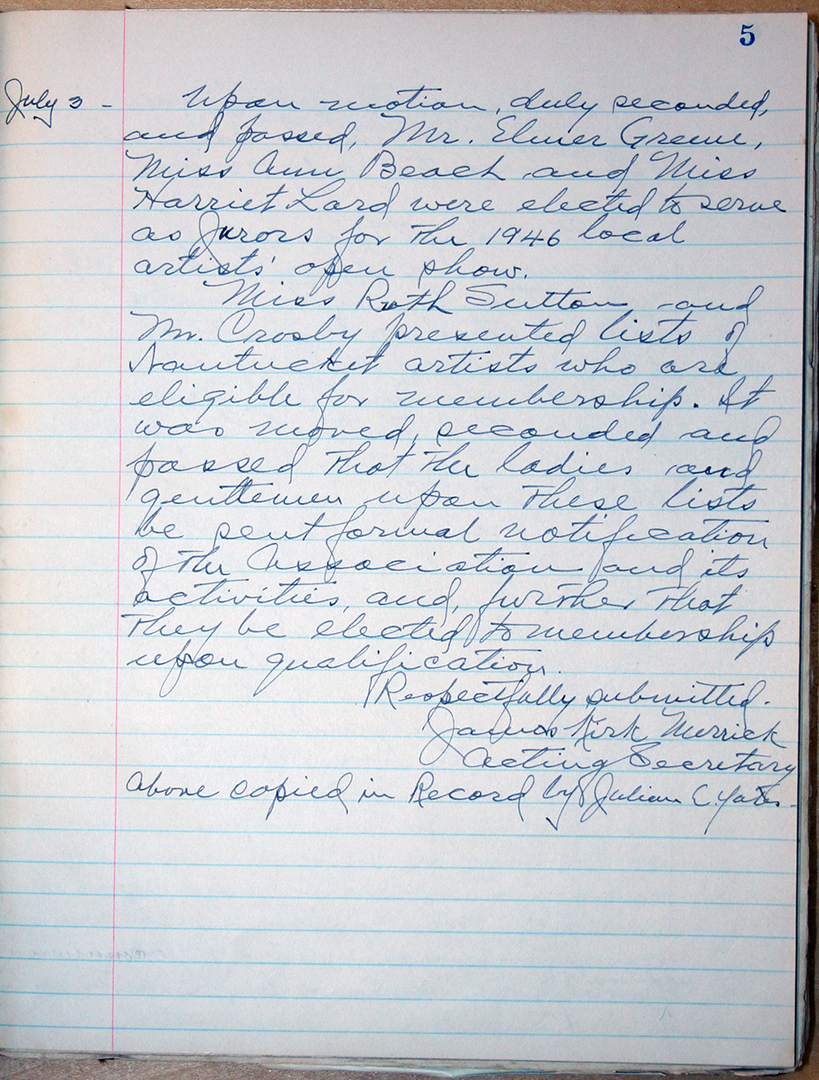 5
July 3 - Upon motion, duly seconded,
and passed, Mr. Elmer Greene,
Miss Ann Beach and Miss
Harriet Lord were elected to serve
as Jurors for the 1946 local
artists' open show.
Miss Ruth Sutton and
Mr. Crosby presented lists of
Nantucket artists who are
eligible for membership. It
was moved, seconded and
passed that the ladies and
gentlemen upon these lists
be sent formal notification
of the Association and its
activities, and, further that
they be elected to membership
upon qualification.
Respectfully submitted.
James Kirk Merrick
Acting Secretary
Above copied in Record by Julian C. Yates-